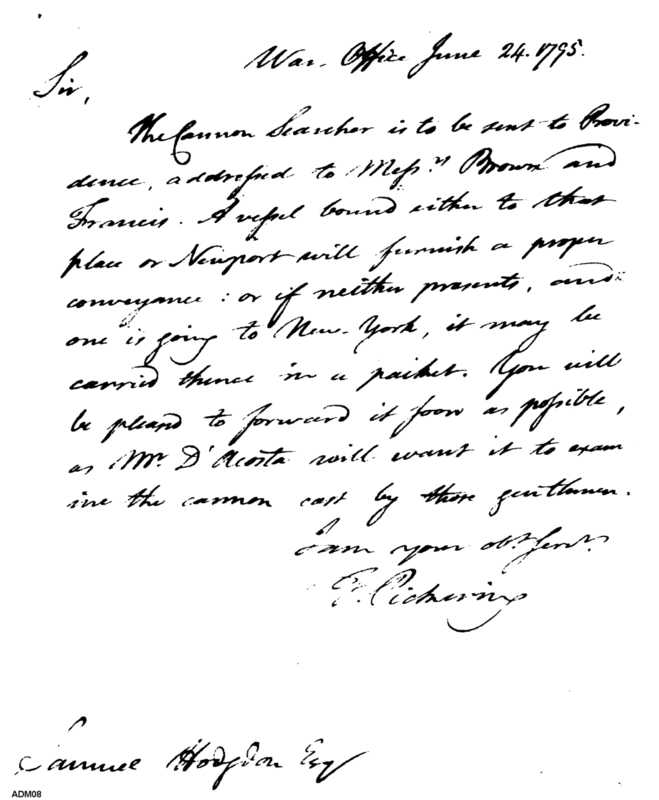 War Office June 24. 1795.
Sir,
The Cannon Searcher is to be sent to Provi-
dence, addressed to Messrs Brown and
Francis. A vessel bound either to that
place or Newport will furnish a proper
conveyance: or if neither presents, and
one is going to New-York, it may be
carried thence in a packet. You will
be pleased to forward it soon as possible,
as Mr. D'Acosta will want it to exam
ine the cannon cast by those gentlemen.
I am your obt. servt.
T. Pickering
Samuel Hodgdon Esq
ADM08